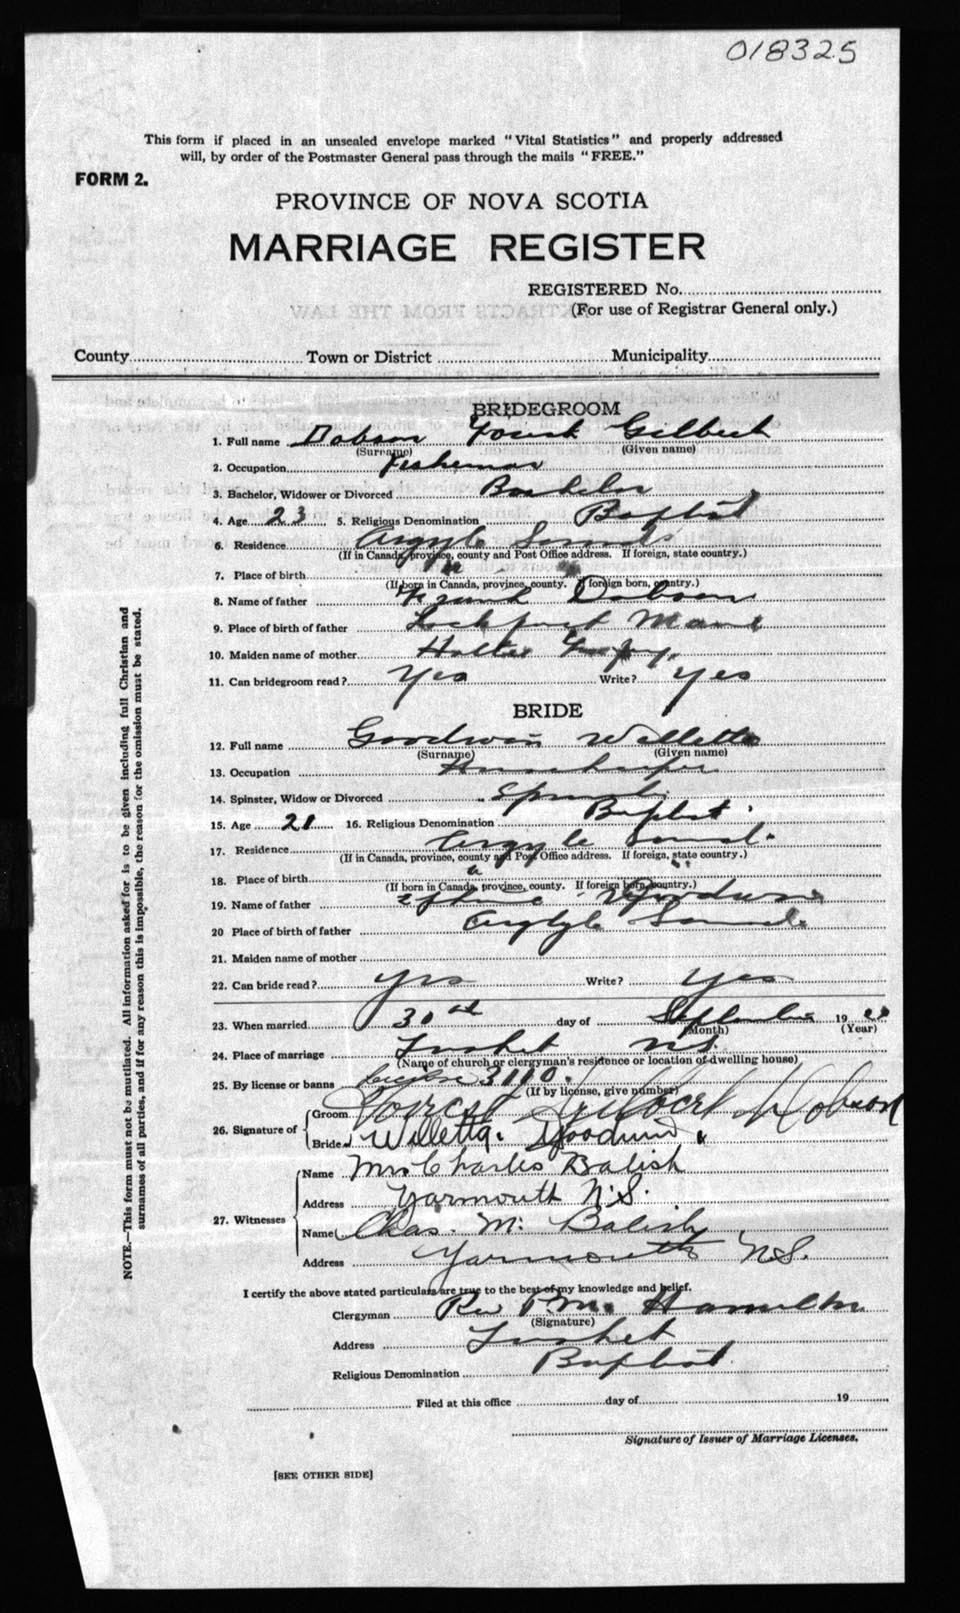 018325
This form if placed in an unsealed envelope marked "Vital Statistics" and properly addressed
will, by order of the Postmaster General pass through the mails "FREE."
FORM 2.
PROVINCE OF NOVA SCOTIA
MARRIAGE REGISTER
REGISTERED No.
(For use of Registrar General only.)
County Town or District Municipality
BRIDEGROOM
1. Full name Dobson Gilbert
(Surname) (Given name)
2. Occupation Fisherman
3. Bachelor, Widower or Divorced Bachelor
4. Age 23 5. Religious Denomination Baptist
6. Residence Argyle Sound
(If in Canada, province, county and Post Office address. If foreign, state country.)
7. Place of birth
(If born in Canada, province, county. If foreign born, country.)
8. Name of father Frank Dobson
9. Place of birth of father
10. Maiden name of mother
11. Can bridegroom read? Yes Write? Yes
BRIDE
12. Full name Goodwin Willetta
(Surname) (Given name)
13. Occupation Housekeeper
14. Spinster, Widow or Divorced
15. Age 21 16. Religious Denomination Baptist
17. Residence Argyle Sound
(If in Canada, province, county and Post Office address. If foreign, state country.)
18. Place of birth
(If born in Canada, province, county. If foreign born, country.)
19. Name of father Goodwin
20 Place of birth of father Argyle Sound
21. Maiden name of mother
22. Can bride read? yes Write? yes
23. When married 30th day of September 19
(Month) (Year)
24. Place of marriage Tusket N.S.
(Name of church or clergyman's residence or location of dwelling house)
25. By license or banns license 3110.
(If by license, give number)
26. Signature of Groom Forest Gilbert Dobson
Bride Willetta. Goodwin
27. Witnesses Name Mrs Charles Balish
Address Yarmouth N.S.
Name Chas. M. Balish
Address Yarmouth N.S.
I certify the above stated particulars are true to the best of my knowledge and belief.
Clergyman Rev Hamilton
(Signature)
Address Tusket
Religious Denomination Baptist
Filed at this office day of 19
Signature of Issuer of Marriage Licenses.
[SEE OTHER SIDE]
NOTE.—This form must not be mutilated. All information asked for is to be given including full Christian and
surnames of all parties, and if for any reason this is impossible, the reason for the omission must be stated.